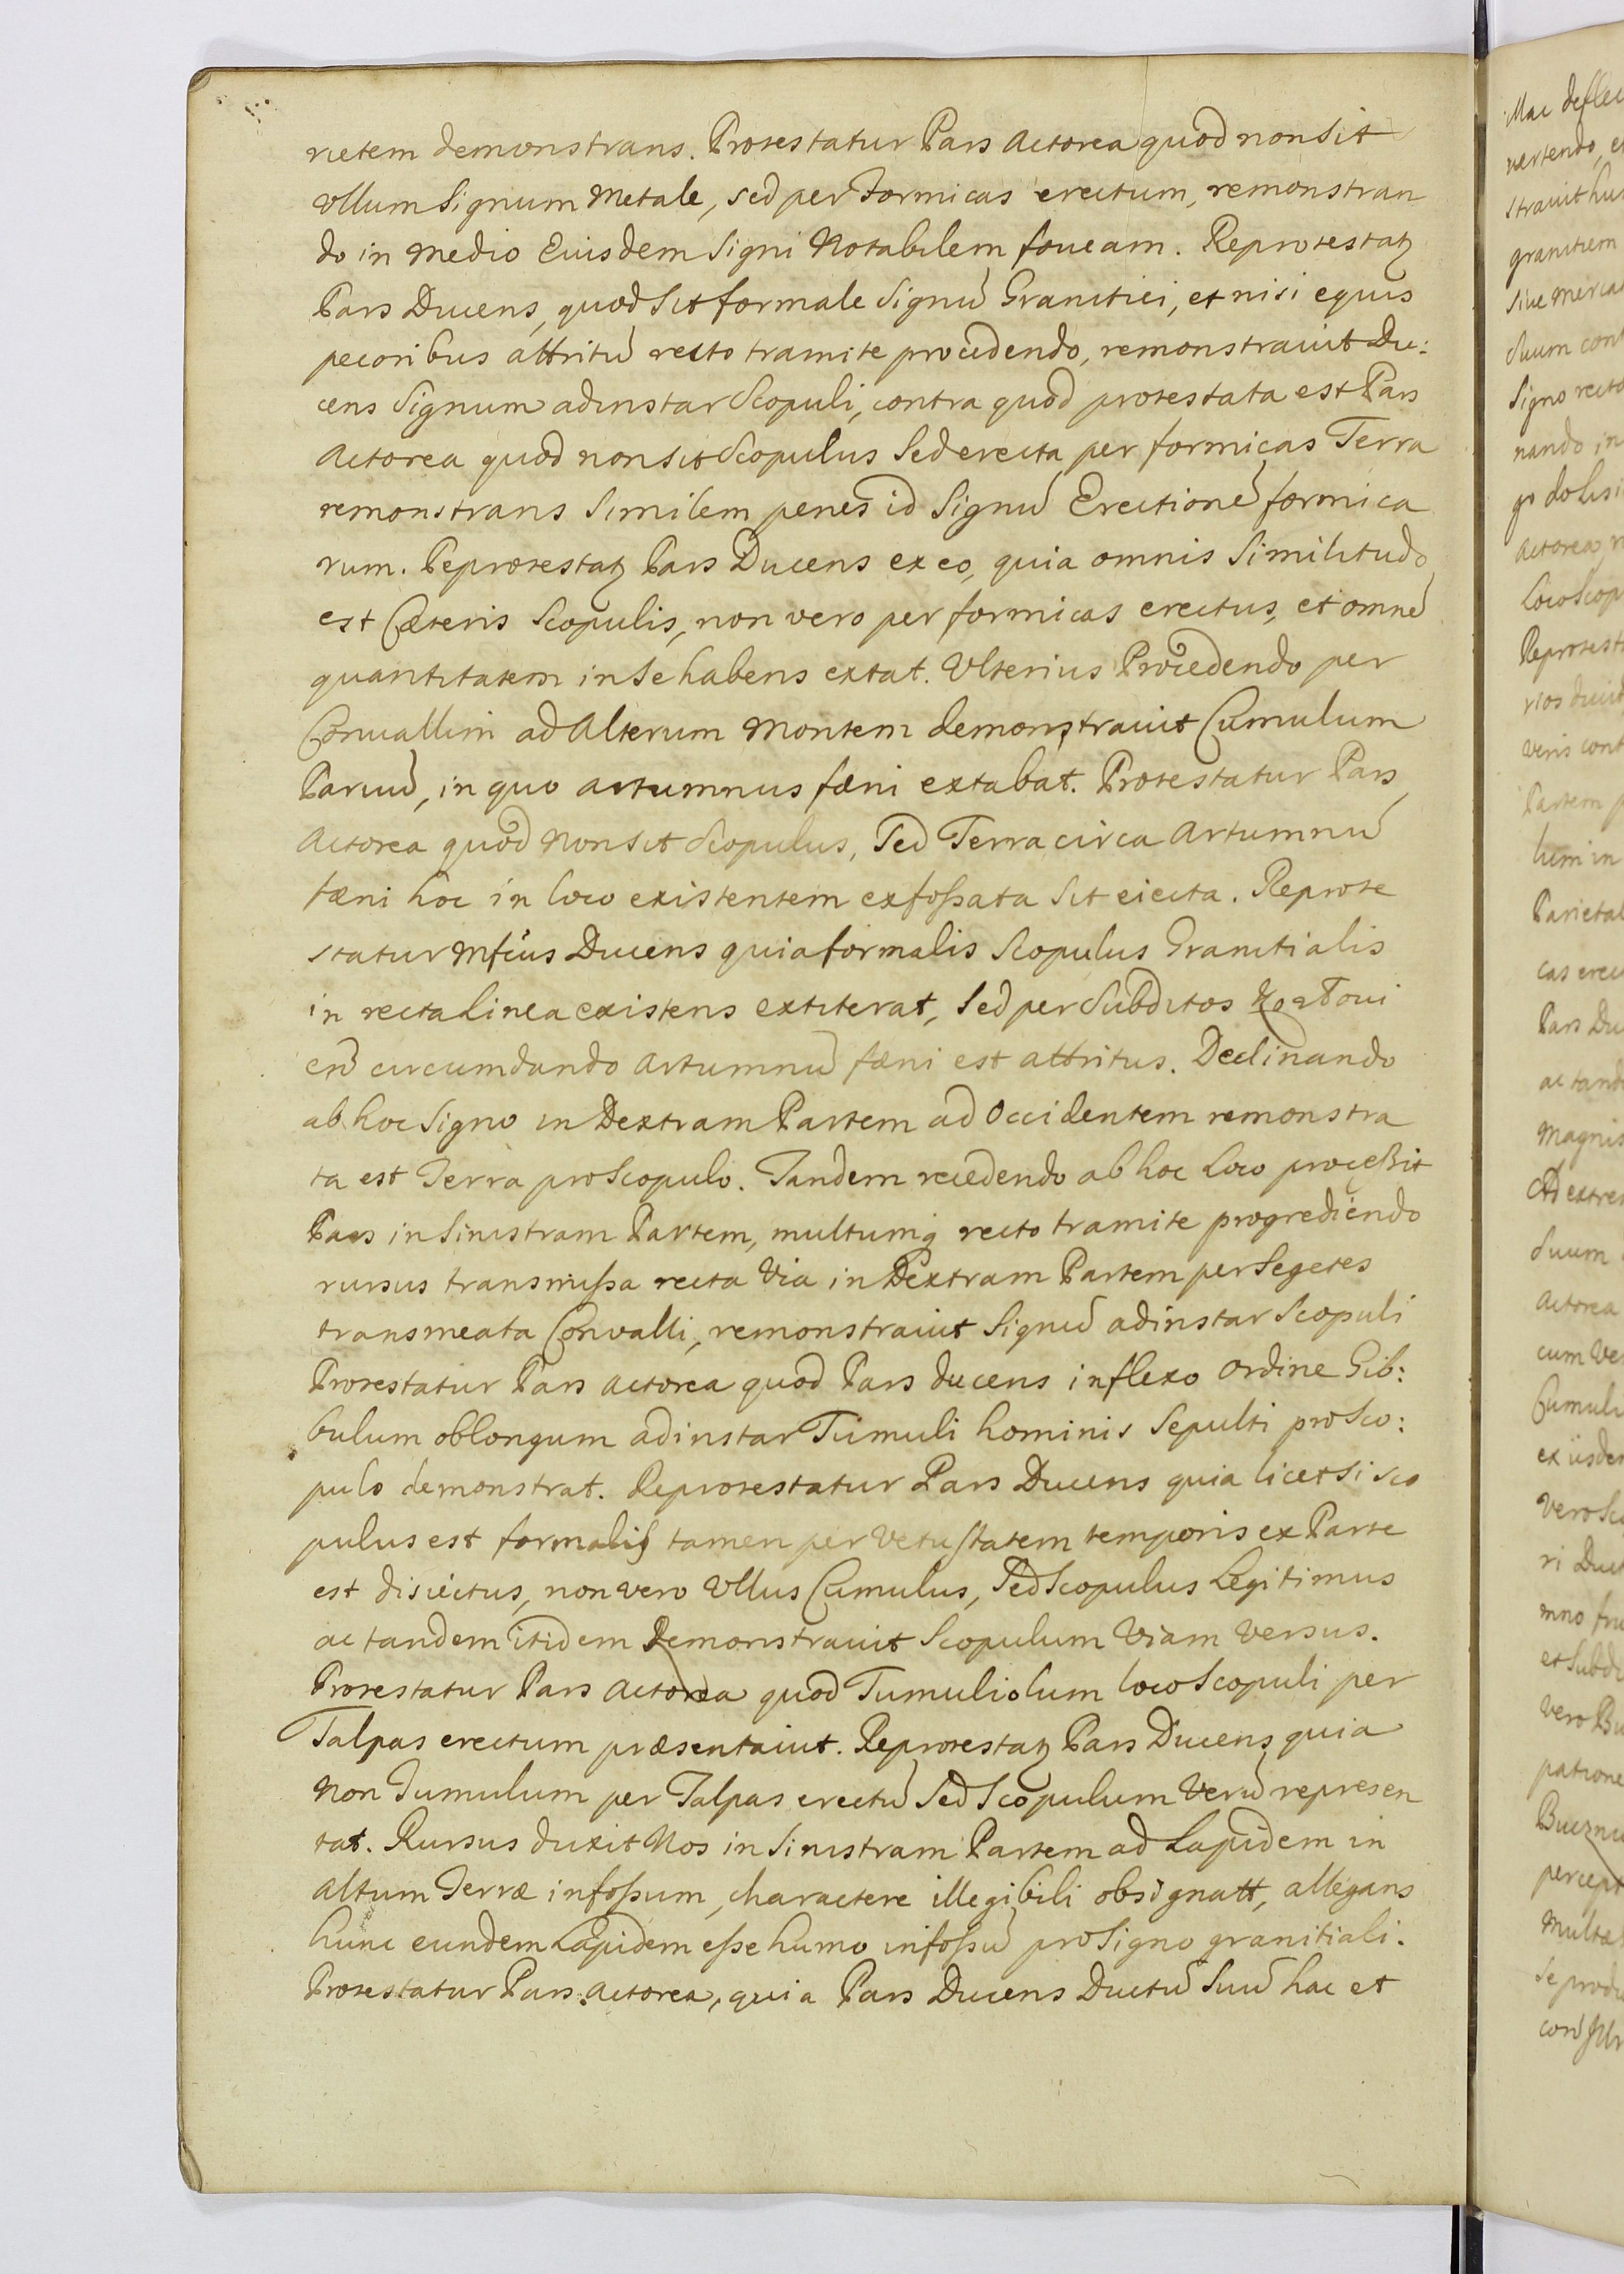 rietem demonstrans. Protestatur Pars Actorea quod non sit
ullum Signum Metale, sed per Formicas erectum, remonstran
do in medio Eiusdem Signi Notabilem foueam. Reprotestatz
Pars Ducens, quod sit formale Signū Granitiei, et nisi equis
pecoribus attritū recto tramite procedendo, remonstrauit Du:
cens Signum adinstar Scopuli, contra quod protestata est Pars
Actorea quod non sit Scopulus Sed erecta per formicas Terra
remonstrans Similem penes id Signū Erectionē formica
rum. Reprotestatz Pars Ducens ex eo, quia omnis Similitudo
est Cæteris Scopulis, non vero per formicas erectus, et omnē
quantitatem in se habens extat. Ulterius Procedendo per
Conuallem ad Alterum Montem demonstrauit Cumulum
Paruū, in quo artumnus fæni extabat. Protestatur Pars
Actorea quod non sit Scopulus, Sed Terra circa Artumnū
fæni hoc in loco existentem exfossata sit eiecta. Reprote
statur Mfcus Ducens quia formalis Scopulus Granitialis
in recta linea existens extiterat, Sed per Subditos
eū circumdando Artumnū fæni est attritus. Declinando
ab hoc Signo in Dextram Partem ad Occidentem remonstra
ta est Terra pro Scopulo. Tandem recedendo ab hoc Loco processit
Pars in Sinistram Partem, multumq recto tramite progrediendo
rursus transmissa recta Via in Dextram Partem per Segetes
transmeata Convalli, remonstrauit Signū adinstar Scopuli
Protestatur Pars Actorea quod Pars ducens inflexo Ordine Gib:
bulum oblongum adinstar Tumuli hominis Sepulti pro Sco:
pulo demonstrat. Reprotestatur Pars Ducens quia licet si sco
pulus est formalis tamen per vetustatem temporis ex Parte
est disiectus, non vero Ullus Cumulus, Sed Scopulus Legitimus
ac tandem itidem Demonstrauit Scopulum Viam Versus.
Protestatur Pars Actorea quod Tumuliolum loco Scopuli per
Talpas erectum præsentauit. Reprotestatz Pars Ducens quia
Non Tumulum per Talpas erectū Sed Scopulum Verū represen
tat. Rursus duxit Nos in Sinistram Partem ad Lapidem in
altum Terræ infossum, charactere illegibili obsignatt, allegans
hunc eundem Lapidem esse humo infossū pro Signo granitiali.
Protestatur Pars Actorea, quia Pars Ducens Ductū Suū hac et